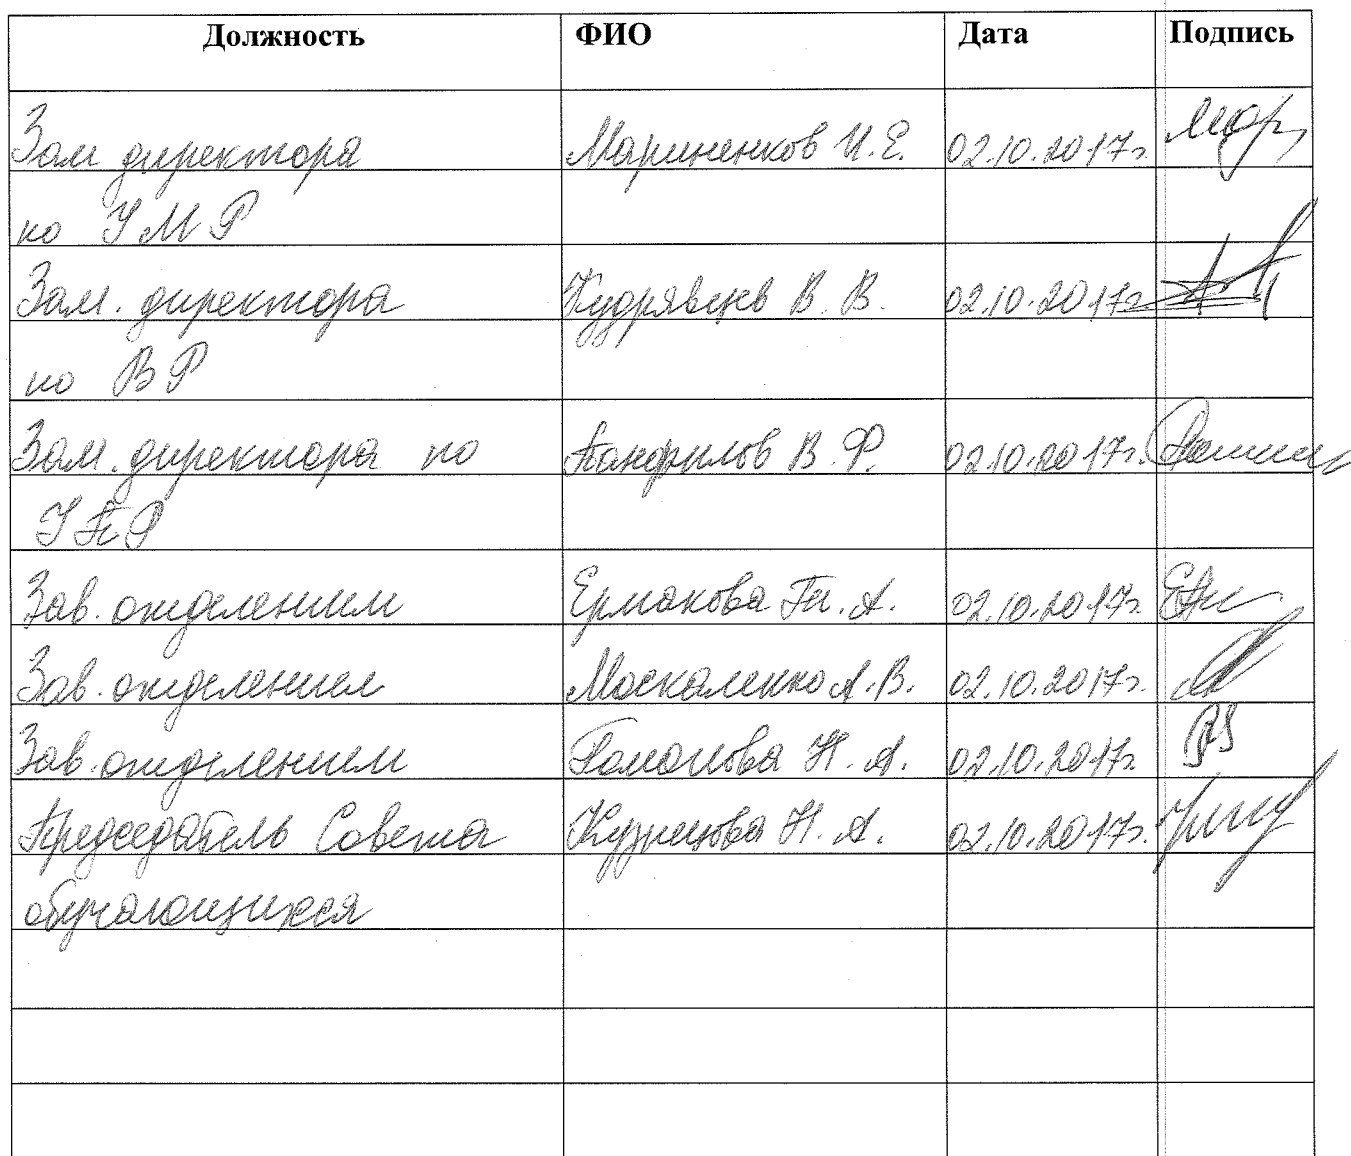 Должность ФИО Дата Подпись
Зам директора Мариненков И.Е. 02.10.2017г.
по УМР
Зам. директора Кудрявцев В.В. 02.10.2017г.
по ВР
Зам. директора по В.Ф. 02.10.2017г.
УПР
Зав. отделением Ермакова Гл.А. 02.10.2017г.
Зав. отделением Москаленко А.В. 02.10.2017г.
Зав. отделением Романова Н.А. 02.10.2017г.
Председатель Совета Кузнецова Н.А. 02.10.2017г.
обучающихся